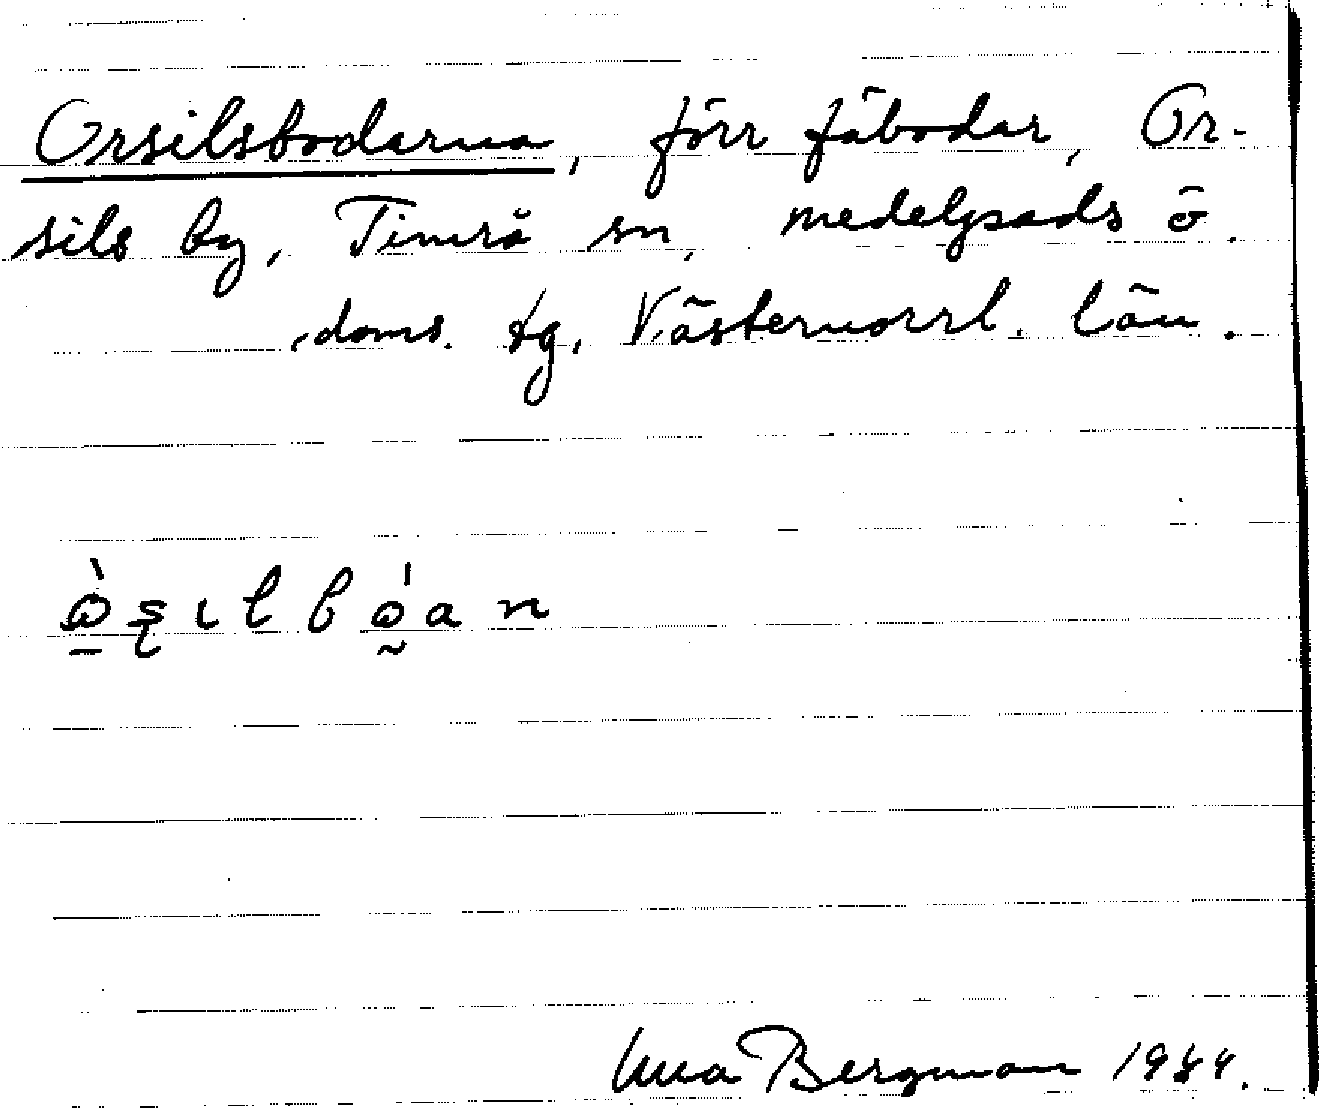 Orsilsbodarna, förr fäbodar, Or-
sils by, Timrå sn, medelpads ö.
doms. tg, Västernorrl. län.
Bergman